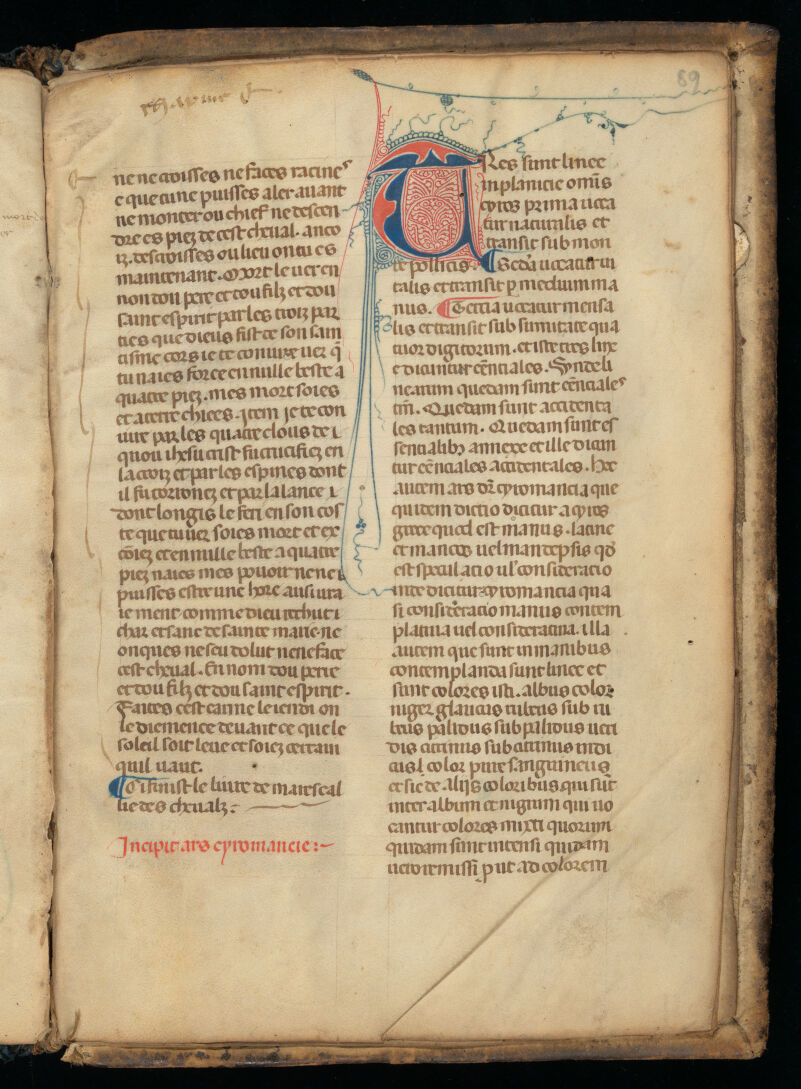 89
ne ne croisses ne faces racine
e que tu ne puisses aler auant
ne monter ou chief ne descen
dre es piez de cest cheual. anco
iz. descroisses ou lieu on tu es
maintenant. Mort le uer en
non dou pere et dou filz et dou
saint espirit par les troiz par
ties que dieus fist de son sain
tisme cors ie te coniure uer q̄
tu naies force en nulle beste a
quatre piez. mes mort soies
et a terre chiees. Item je te con
iure par les quatre clous de i
quoi ihesu crist fu crucifiez en
la croiz et par les espines dont
il fu coronez et par la lance i
dont longis le feri en son cos
te que tu uer soies mort et ex
et en nulle beste a quatre
piez naies mes pouoir ne ne i
puisses estre une hore ausi ura
ie ment comme dieu rechut i
char et sanc de sainte marie. ne
onques ne seu dolut ne ne face
cest cheual. En nom dou pere
et dou filz et dou saint espirit.
Faites cest carme le iendi on
le diemence deuant ce que le
soleil soit leue et soiez certain
quil uaut.
Ci finist le liure de marescal
lie des cheualz:
Incipit ars cyromancie:~
TRes sunt linee
in planicie om̄is
cyros prima uoca
tur naturalis et
transit sub mon
te pollicis. Scd̄a uocatur ui
talis et transit p mediu m ma
nus. Tercia uocatur mensa
lis et transit sub sumitate qua
tuor digitorum. et iste tres linee
dicuntur cēnciales. Synde li
nearum quedam sunt cēnciales
tm̄. Quedam sunt accidenta
les tantum. Quedam sunt es
sencialibȝ annexe et ille dicun
tur cēnciales accidentales. hec
autem ars dr̄ cyromancia que
quidem dictio dicitur a cyros
grece quod est manus. latine
et mancos uel mantepsis qd̄
est speculacio ul' consideracio
inde dicitur cyromancia qua
si consideracio manus contem
platiua uel consideratiua. illa
autem que sunt in manibus
contemplanda sunt linee et
sunt colores isti. albus color
niger glaucus rubeus sub ru
beus palidus subpalidus uiri
dis citrinus subcitrinus indi
cus color pure sanguineus
et sic de alijs coloribus qui sūt
inter album et nigrum qui uo
cantur colores mixti quorum
quidam sunt intensi quidam
uero remissi put ad colorem